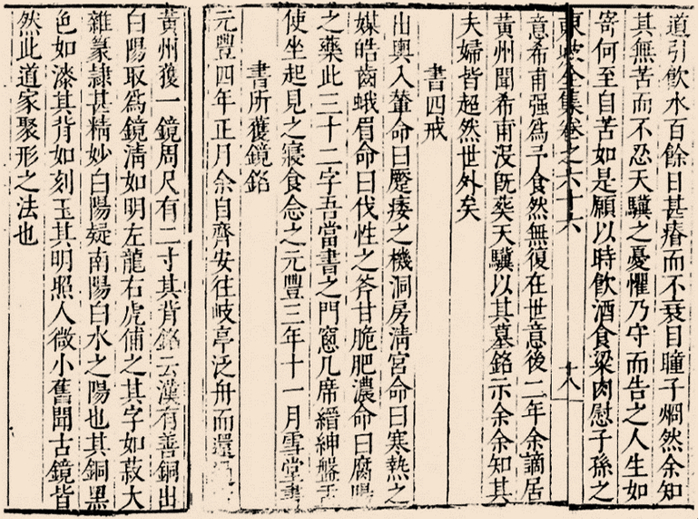 道引飲水百餘日甚瘠而不衰目瞳子烱然余知
其無苦而不忍天驥之憂懼乃守而告之人生如
寄何至自苦如是願以時飲酒食粱肉慰子孫之
東坡全集卷之六十六 十八
意希甫强爲予食然無復在世意後二年余謫居
黄州聞希甫沒旣葬天驥以其墓銘示余余知其
夫婦皆超然世外矣
書四戒
出輿入輦命曰蹷痿之機洞房淸宮命曰寒熱之
媒皓齒蛾眉命曰伐性之斧甘脆肥濃命曰腐腸
之藥此三十二字吾當書之門窻几席縉紳盤盂
使坐起見之寢食念之元豐三年十一月雪堂書
書所獲鏡銘
元豐四年正月余自齊安往岐亭泛舟而還
黄州獲一鏡周尺有二寸其背銘云漢有善銅出
白陽取爲鏡淸如明左龍右虎俌之其字如菽大
雜篆隷甚精妙白陽疑南陽白水之陽也其銅黑
色如漆其背如刻玉其明照人微小舊聞古鏡皆
然此道家聚形之法也